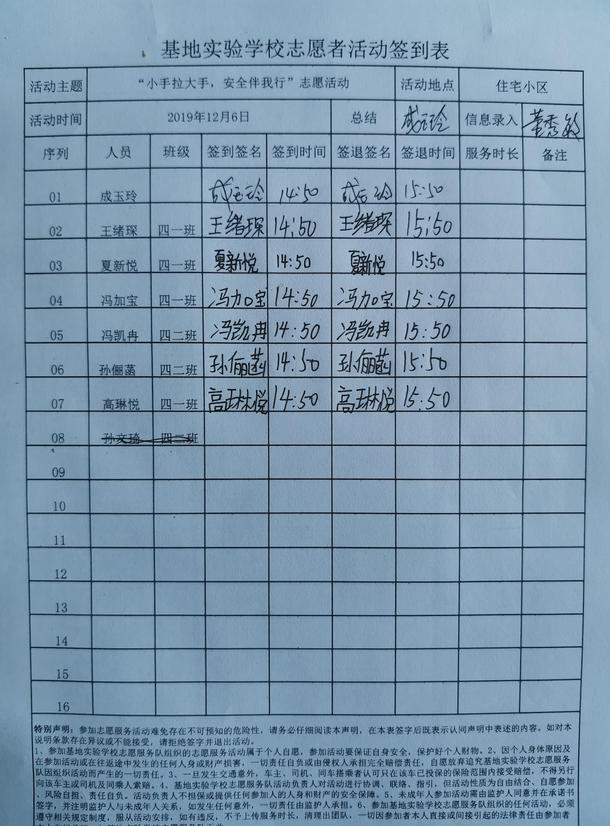 基地实验学校志愿者活动签到表
活动主题 “小手拉大手，安全伴我行”志愿活动 活动地点 住宅小区
活动时间 2019年12月6日 总结 成玉玲 信息录入 董秀敏
序列 人员 班级 签到签名 签到时间 签退签名 签退时间 服务时长 备注
01 成玉玲 成玉玲 14:50 成玉玲 15:50
02 王绪琛 四一班 王绪琛 14:50 王绪琛 15:50
03 夏新悦 四一班 夏新悦 14:50 夏新悦 15:50
04 冯加宝 四一班 冯加宝 14:50 冯加宝 15:50
05 冯凯冉 四二班 冯凯冉 14:50 冯凯冉 15:50
06 孙俪菡 四二班 孙俪菡 14:50 孙俪菡 15:50
07 高琳悦 四一班 高琳悦 14:50 高琳悦 15:50
08 孙文琦 四二班
09
10
11
12
13
14
15
16
特别声明：参加志愿服务活动难免存在不可预知的危险性，请务必仔细阅读本声明，在本表签字后既表示认同声明中表述的内容。如对本
说明条款存在异议或不能接受，请拒绝签字并退出活动。
1、参加基地实验学校志愿服务队组织的志愿服务活动属于个人自愿，参加活动要保证自身安全，保护好个人财物。2、因个人身体原因及
在参加活动或在往返途中发生的任何人身或财产损害，一切责任负或由侵权人承担完全赔偿责任，自愿放弃追究基地实验学校志愿服务
队因组织活动而产生的一切责任，3、一旦发生交通意外，车主、司机、同车搭乘者认可只在该车已投保的保险范围内接受赔偿，不得另行
向该车主或司机及同乘人索赔。4、基地实验学校志愿服务队负责人对活动进行协调、联络、指引，但活动性质为自由结合、自愿参加
、风险自担、责任自负。活动负责人不担保或提供任何参加人的人身和财产的安全保障。5、未成年人参加活动需由监护人同意并在承诺书
签字，并注明监护人与未成年人关系，如发生任何意外，一切责任由监护人承担。6、参加基地实验学校志愿服务队组织的任何活动，必须
遵守相关规定制度，服从活动安排，如有违反，不予上传服务时长，清理出团队，一切因参加者本人直接或间接引起的法律责任由参加者